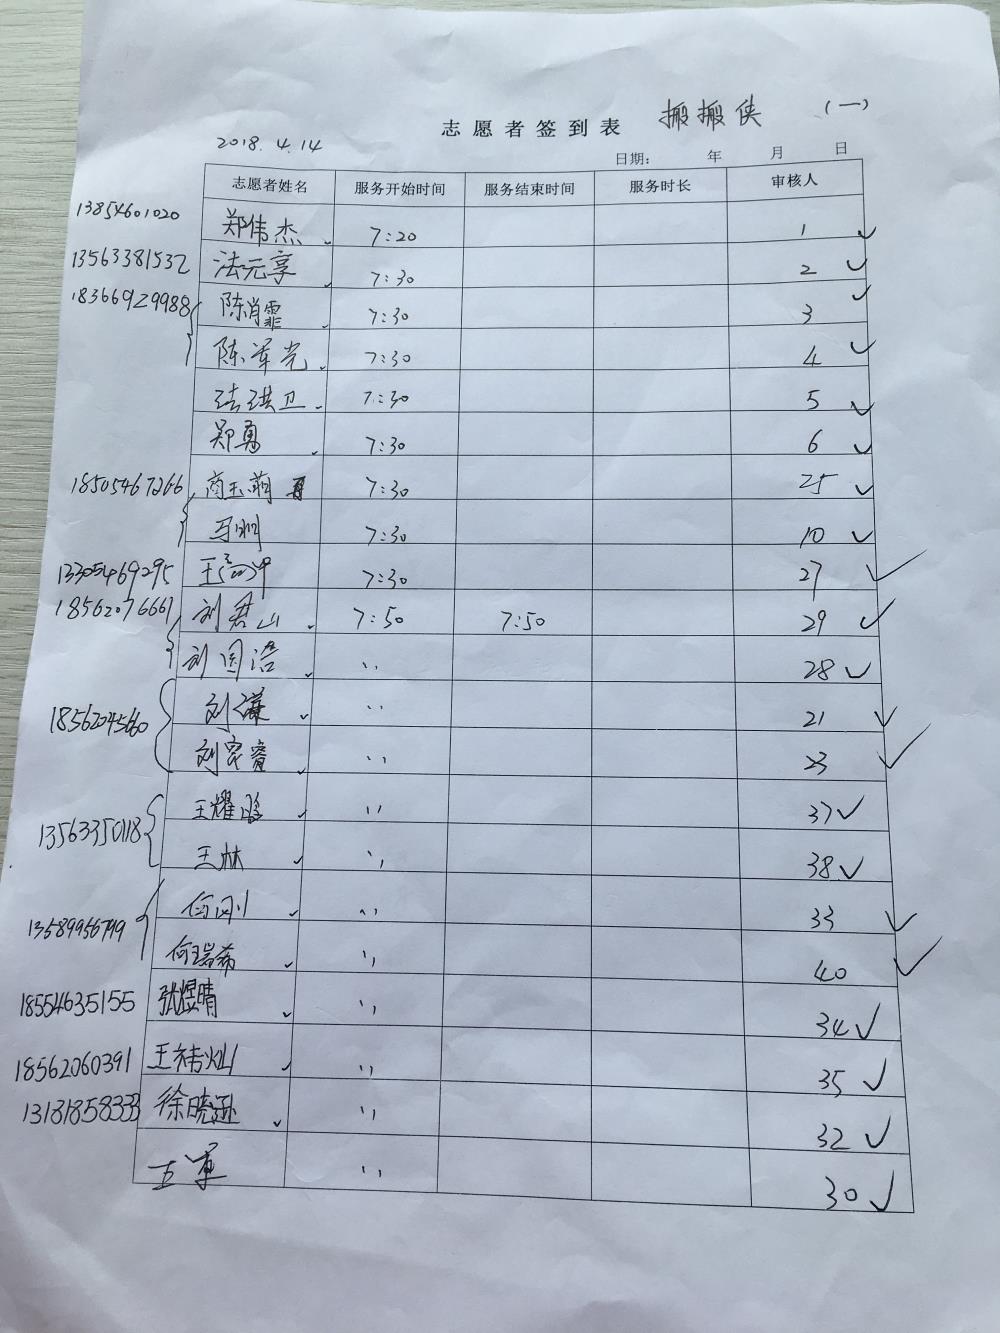 志愿者签到表 搬搬侠 （一）
2018.4.14
日期： 年 月 日
志愿者姓名 服务开始时间 服务结束时间 服务时长 审核人
13854601020 郑伟杰 7:20 1 ✓
13563381532 法元享 7:30 2 ✓
18366929988 陈肖霏 7:30 3 ✓
陈军光 7:30 4 ✓
法洪卫 7:30 5 ✓
郑勇 7:30 6 ✓
18505467266 商玉萌 7:30 25 ✓
马明 7:30 10 ✓
13305469295 王 7:30 27 ✓
18562076661 刘君山 7:50 7:50 29 ✓
刘国浩 〃 28 ✓
18562045660 刘潇 〃 21 ✓
刘家睿 〃 23 ✓
13563350118 王耀 〃 37 ✓
王林 〃 38 ✓
13589956799 何刚 〃 33 ✓
何瑞希 〃 40 ✓
18554635155 张煜晴 〃 34 ✓
18562060391 王祎灿 〃 35 ✓
13181858333 徐晓 〃 32 ✓
王军 〃 30 ✓